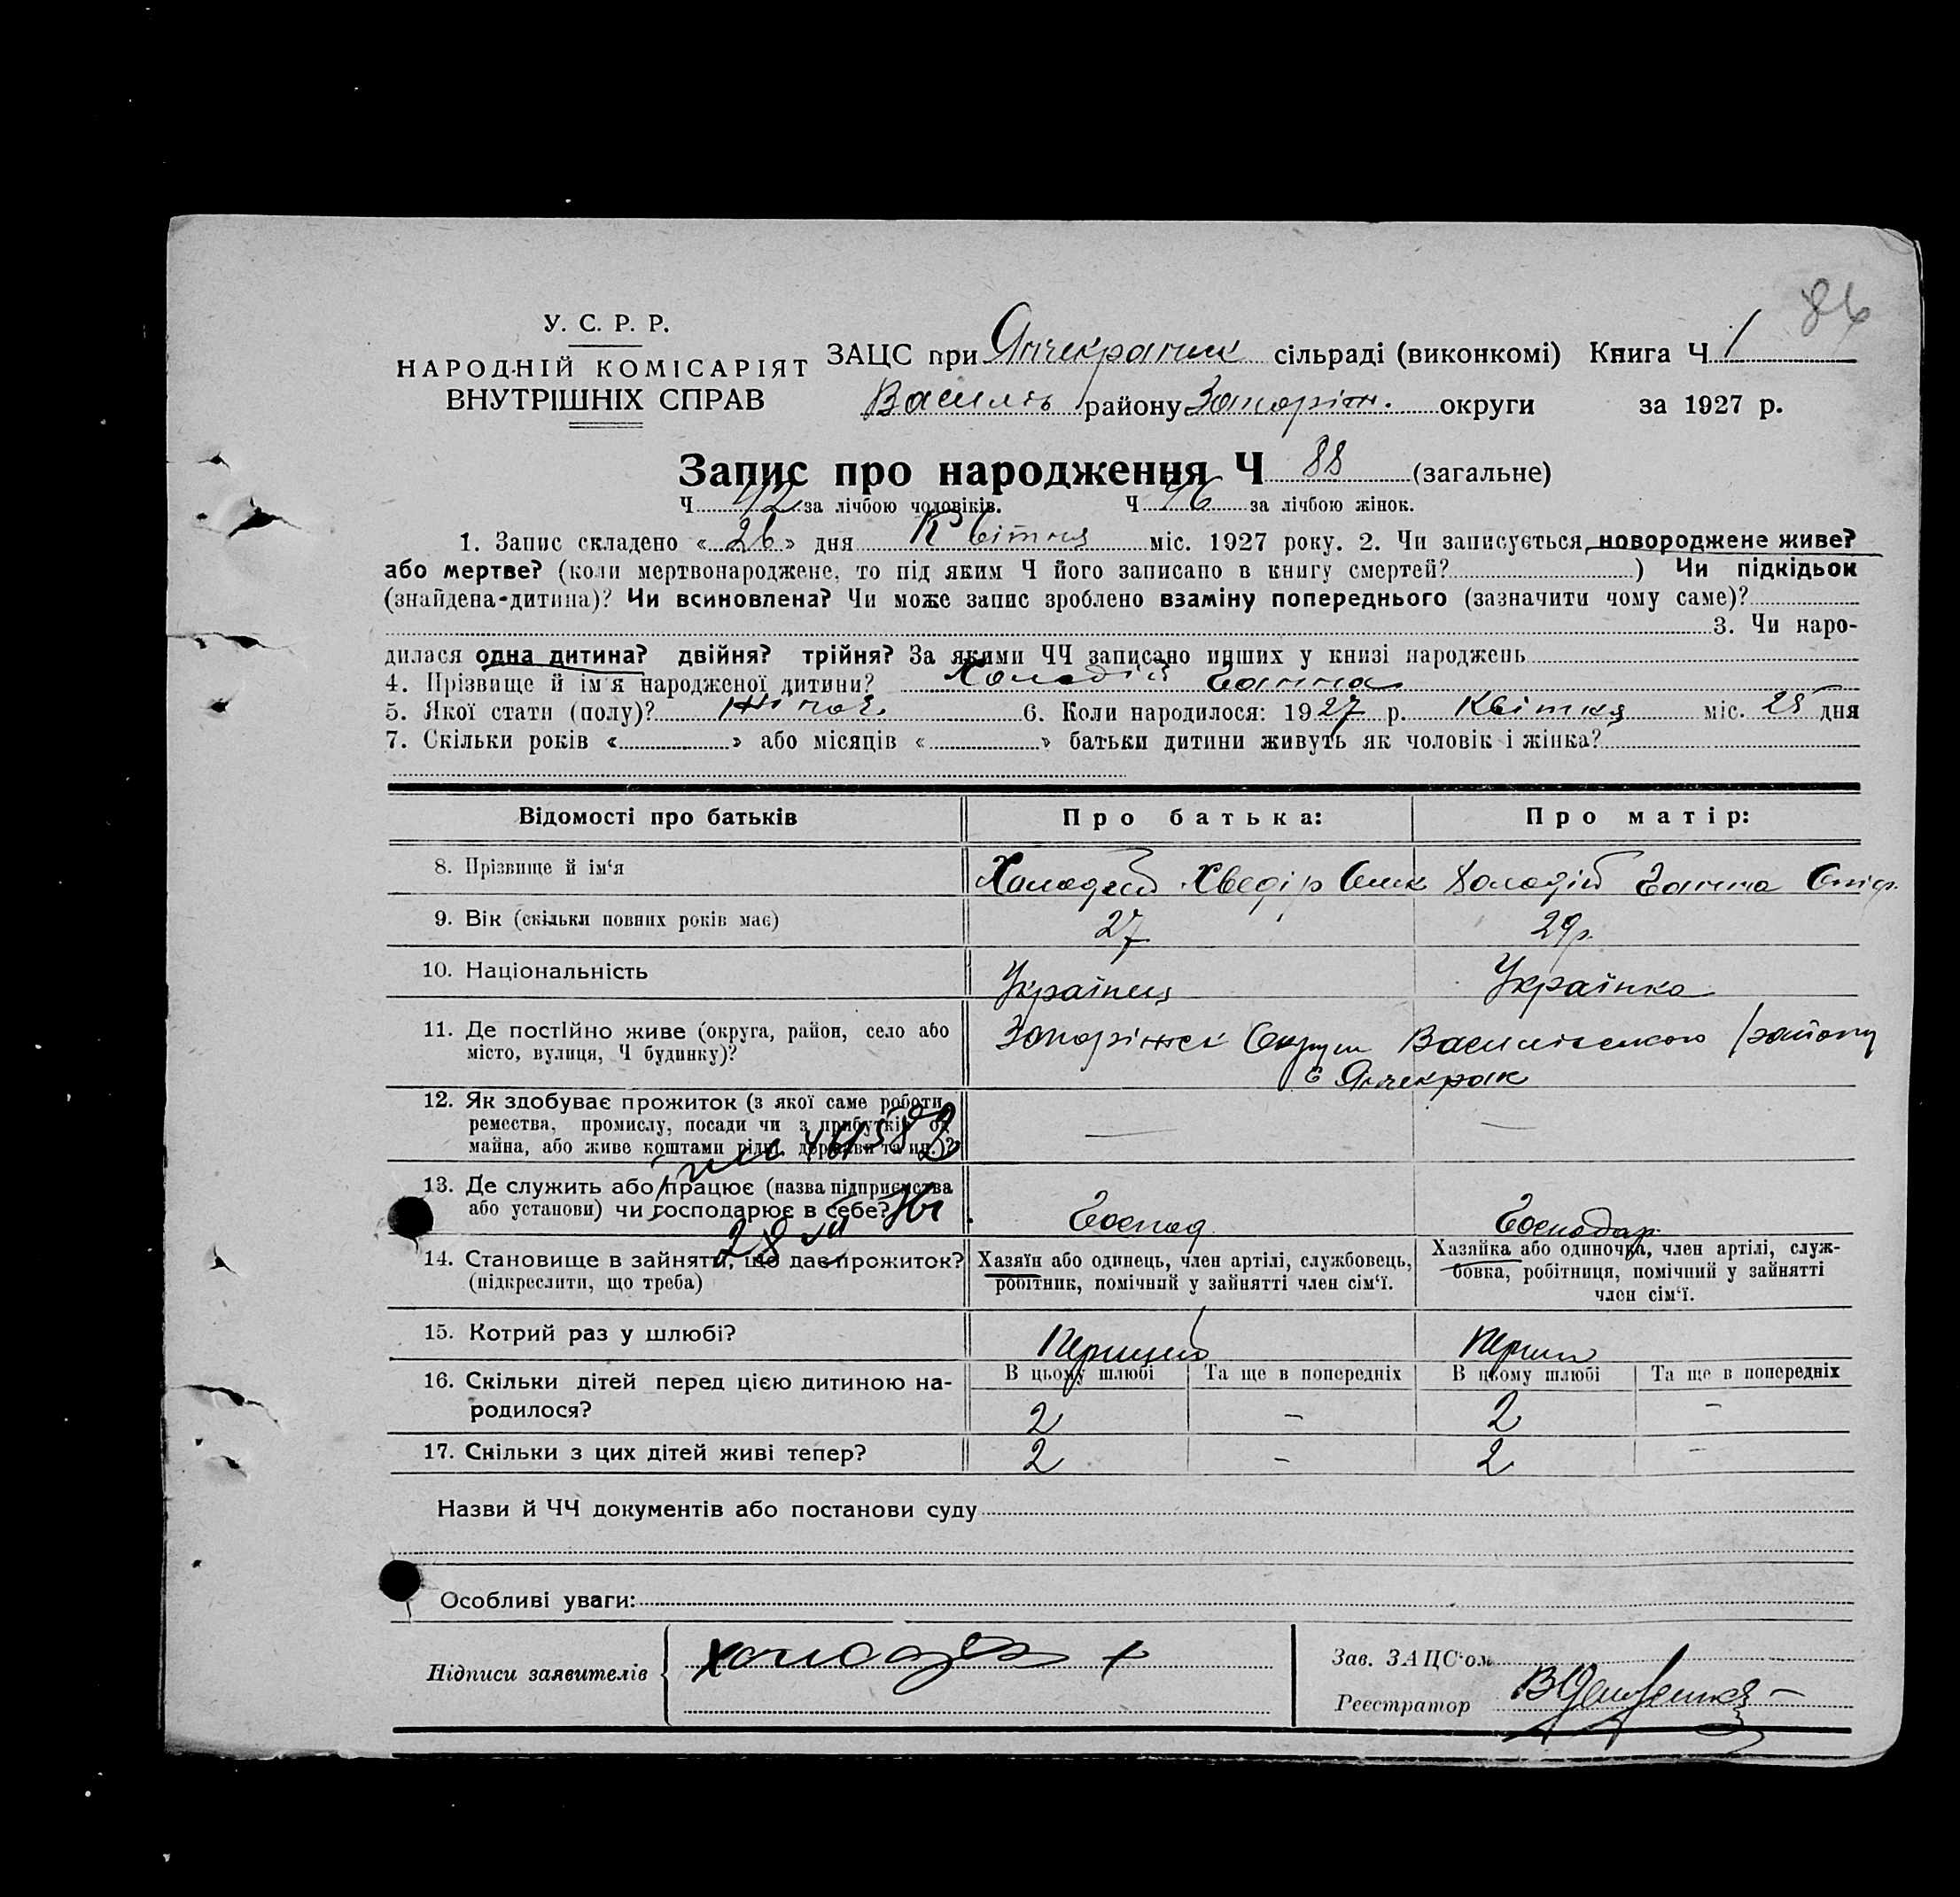 86
У. С. Р. Р.
НАРОДНІЙ КОМІСАРІЯТ
ВНУТРІШНІХ СПРАВ
ЗАЦС при Янчекракск сільраді (виконкомі) Книга Ч 1
Василів району Запоріж. округи за 1927 р.
Запис про народження Ч 88 (загальне)
Ч 42 за лічбою чоловіків. Ч 46 за лічбою жінок.
1. Запис складено « 26 » дня Квітня міс. 1927 року. 2. Чи записується новороджене живе?
або мертве? (коли мертвонароджене, то під яким Ч його записано в книгу смертей? ) Чи підкідьок
(знайдена-дитина)? Чи всиновлена? Чи може запис зроблено взаміну попереднього (зазначити чому саме)?
3. Чи наро-
дилася одна дитина? двійня? трійня? За якими ЧЧ записано инших у книзі народжень
4. Прізвище й ім'я народженої дитини? Холодій Ганна
5. Якої стати (полу)? жіноч. 6. Коли народилося: 1927 р. Квітня міс. 25 дня
7. Скільки років « » або місяців « » батьки дитини живуть як чоловік і жінка?
Відомості про батьків Про батька: Про матір:
8. Прізвище й ім'я Холодій Хведір Холодій Ганна
9. Вік (скільки повних років має) 27 29р.
10. Національність Українець Українка
11. Де постійно живе (округа, район, село або Запоріжск Округи Василівського району
місто, вулиця, Ч будинку)? с Янчекрак
12. Як здобуває прожиток (з якої саме роботи, — —
ремества, промислу, посади чи з прибутків од
майна, або живе коштами рідні, держави та ин.)?
13. Де служить або працює (назва підприємства
або установи) чи господарює в себе? Господ. Господар.
14. Становище в зайнятті, що дає прожиток? Хазяїн або одинець, член артілі, службовець, Хазяйка або одиночка, член артілі, служ-
(підкреслити, що треба) робітник, помічний у зайнятті член сім'ї. бовка, робітниця, помічний у зайнятті
член сім'ї.
15. Котрий раз у шлюбі? Перший Перши
16. Скільки дітей перед цією дитиною на- В цьому шлюбі Та ще в попередніх В цьому шлюбі Та ще в попередніх
родилося? 2 – 2 –
17. Скільки з цих дітей живі тепер? 2 – 2 –
Назви й ЧЧ документів або постанови суду
Особливі уваги:
Підписи заявителів Холодій +
Зав. ЗАЦС'ом
Реєстратор